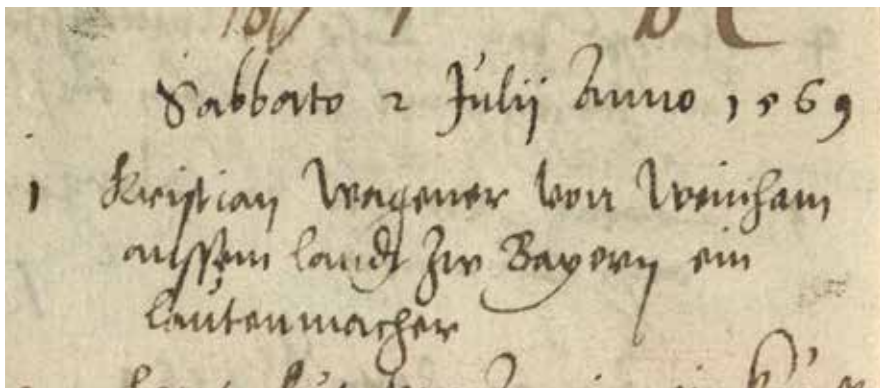 Sabbato 2 Julij Anno 1569
1 Kristian Wagener von Weinham
aussem landt zw Bayern ein
lautenmacher